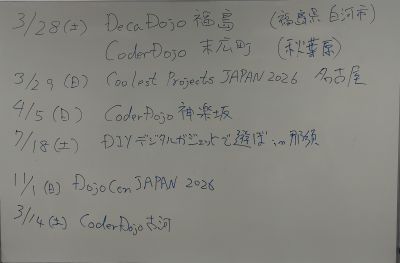 3/28(土) DecaDojo 福島 (福島県 白河市)
CoderDojo 末広町 (秋葉原)
3/29(日) Coolest Projects JAPAN 2026 名古屋
4/5(日) CoderDojo 神楽坂
7/18(土) DIYデジタルガジェットで遊ぼ in 那須
11/1(日) DojoCon JAPAN 2026
3/14(土) CoderDojo 古河